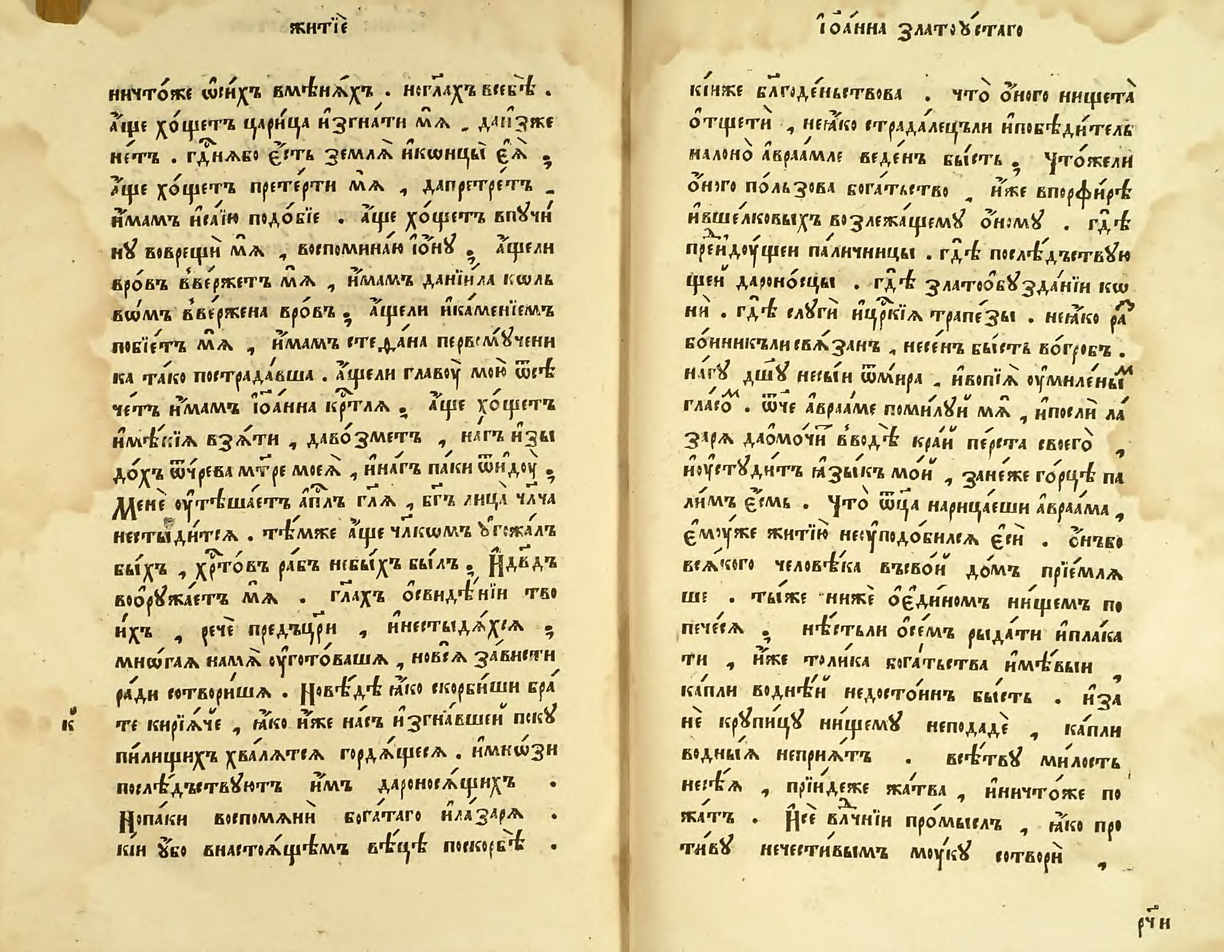 житїѐ
ничто́же ѡ҆си́хъ вмѣнѧ́хъ . ноглахъ всебѣ̀ .
а҆́ще хо́щетъ цари́ца и҆згна́ти мѧ̀ , даи҆зже
не́тъ . гдⷭ҇нѧбо є҆́сть землѧ̀ и҆концы̀ є҆ѧ̀ ;
а҆́ще хо́щетъ прете́рти мѧ̀ , дапретре́тъ .
и҆́мамъ и҆са́їю подо́бїе . а҆́ще хо́щетъ впꙋчи́
нꙋ воврещѝ мѧ̀ , воспомина́ю і҆ѡ́нꙋ ; а҆́щели
вро́въ вве́ржетъ мѧ̀ , и҆́мамъ данїи́ла ко́ль
вѡ́мъ вве́ржена вро́въ ; а҆́щели и҆ка́менїемъ
побїе́тъ мѧ̀ , и҆́мамъ стефа́на первомꙋчени
ка та́ко пострада́вша . а҆́щели главоу̀ мою̀ ѿсѣ
че́тъ и҆́мамъ і҆ѡа́нна крⷭ҇тлѧ ; а҆́ще хо́щетъ
и҆мѣ́нїѧ взѧ́ти , даво́зметъ , на́гъ и҆зы
до́хъ ѿчре́ва мт҃ре моеѧ̀ , и҆на́гъ па́ки ѿидоу̀ ;
Менѐ оу҆тѣша́етъ а҆пⷭ҇лъ гл҃ѧ , бг҃ъ лица̀ чл҃ча
нестыди́тсѧ . тѣ́мже а҆́ще чл҃кѡмъ оу҆гожа́лъ
бы́хъ , хрⷭ҇то́въ ра́бъ небы́хъ бы́лъ ; И҆дв҃дъ
воорꙋжа́етъ мѧ̀ . гл҃ахъ о҆свидѣ́нїи тво
и́хъ , речѐ пред̾цр҃и , и҆нестыдѧ́хсѧ ;
мнѡ́гаѧ намѧ̀ оу҆гото́вашѧ , новсѧ̀ за́висти
ра́ди сотвори́шѧ . Новѣ́дѣ ꙗ҆́ко скорби́ши бра́
те кирїѧ́че , ꙗ҆́ко и҆́же на́съ и҆згна́вшеи пскꙋ
к҃
пи́лищихъ хва́лѧтсѧ гордѧ́щесѧ . и҆мнѡ́зи
послѣ́дъствꙋютъ и҆̀мъ дароносѧ́щихъ .
Нопа́ки воспомѧнѝ бога́таго и҆ла́зарѧ .
кі́и ᲂу҆́бо внастоѧ́щѣмъ вѣ́цѣ поскорбѣ̀ .
і҆ѡа́нна златоꙋ́стаго
кі́иже бл҃годе́ньствова . что̀ о҆́ного нищета̀
о҆тщетѝ , неꙗ҆́ко страда́лецъли и҆побѣди́тель
налоно̀ а҆враа́мле веде́нъ бы́сть ; Что́жели
о҆́ного по́льзова бога́тьство , и҆́же впорфи́рѣ
и҆вше́лковыхъ возлежа́щемꙋ о҆́номꙋ . гдѣ̀
преⷣидоу́щеи па́личницы . гдѣ̀ послѣ́дъствꙋю
щеи дароно́сцы . гдѣ̀ златоо҆бꙋзда́нїи ко
нѝ . гдѣ̀ слꙋгѝ и҆црⷭ҇кїѧ трапе́зы . неꙗ҆́ко раз
бо́йникъли свѧ́занъ , несе́нъ бы́сть во́гробъ .
на́гꙋ дш҃ꙋ несы́и ѿми́ра , и҆вопїѧ̀ оу҆миле́ныⷨ
гла́соⷨ . ѿч҃е а҆враа́ме поми́лꙋй мѧ̀ , и҆послѝ ла́
зарѧ даомочи́ вводѣ̀ кра́й пе́рста своего̀ ,
и҆оу҆стꙋди́тъ ꙗ҆зы́къ мо́й , зане́же го́рцѣ па
ли́мъ є҆́смь . Что̀ ѿц҃а нарица́еши а҆враа́ма ,
є҆мꙋ́же житїю̀ неꙋподо́билсѧ є҆сѝ . О҆нъбо
всѧ́кого человѣ́ка въсво́й до́мъ прїе́млѧ
ше . ты́же нижѐ о҆є҆ди́номъ ни́щемъ по
пече́сѧ ; нѣ́стьли о҆се́мъ рыда́ти и҆пла́ка
ти , и҆́же толи́ка бога́тьства и҆мѣ́выи ,
ка́пли водне́й недосто́инъ бы́сть . и҆за
нѐ крꙋпи́цꙋ ни́щемꙋ неподадѐ , ка́пли
во́дныѧ непрїѧ́тъ . всѣ́твꙋ ми́лость
несѣ́ѧ , прїи́деже жа́тва , и҆ничто́же по
жа́тъ . И҆сѐ влⷣчнїи про́мыслъ , ꙗ҆́ко про
ти́вꙋ нечести́вымъ моу́кꙋ сотворѝ ,
рч҃и